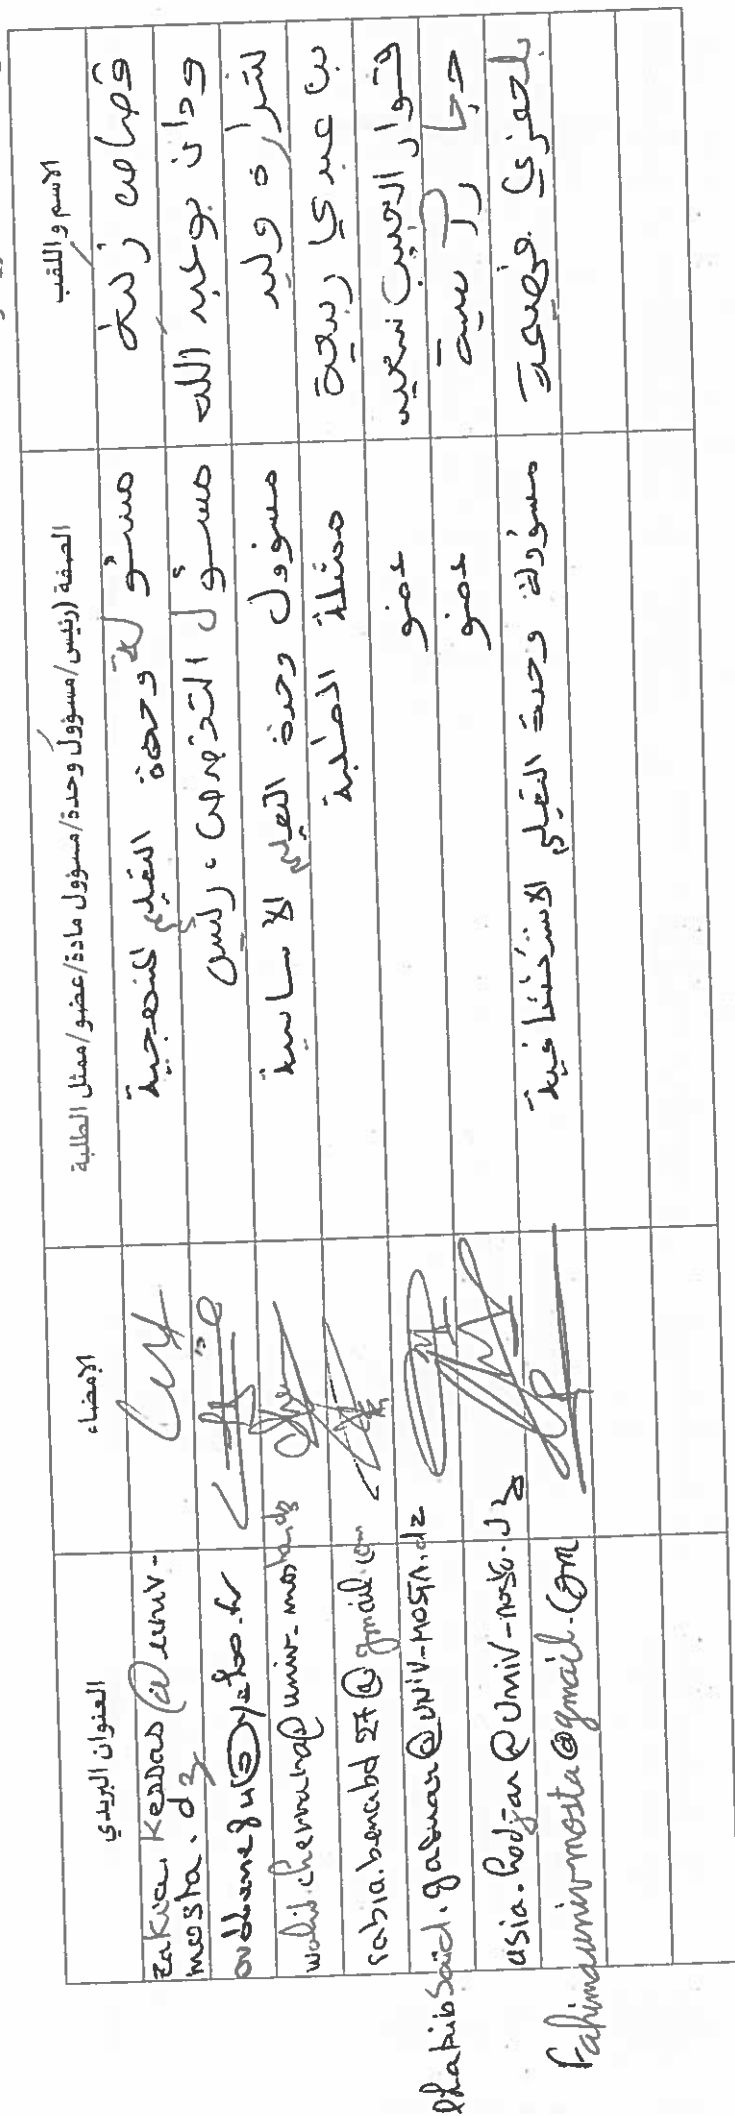 الاسم واللقب
الصفة (رئيس/مسؤول وحدة/مسؤول مادة/عضو/ممثل الطلبة
الإمضاء
العنوان البريدي
قصاص زكية
مسئولة وحدة التعليم المنهجية
zakia.kessas@univ-
mosta.dz
ودان بوعبد الله
مسؤل التخصص، رئيس
@yahoo.fr
شرارة وليد
مسؤول وحدة التعليم الاساسية
walid.cherrara@univ-mosta.dz
بن عبدي ربيعة
ممثلة الطلبة
rabia.benabd27@gmail.com
قتوار الحبيب سعيد
عضو
lhabibSaid.gatuar@univ-mosta.dz
آسية
عضو
asia.hodjar@univ-mosta.dz
فهيمة
مسؤولة وحدة التعليم الاستكشافية
Fahimaunivmosta@gmail.com